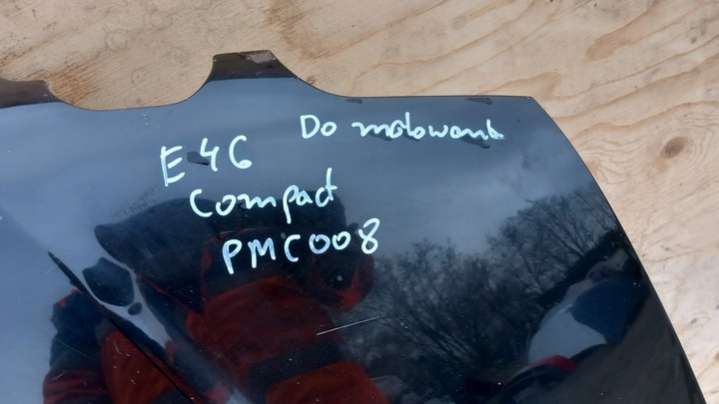 Do malowania
E46
Compact
PMC008